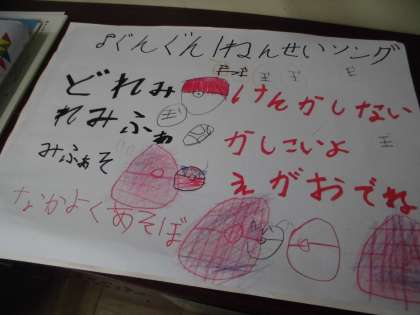 ぐんぐん1ねんせいソング
どれみ けんかしない
れみふぁ かしこいよ
みふぁそ えがおでね
なかよくあそぼ